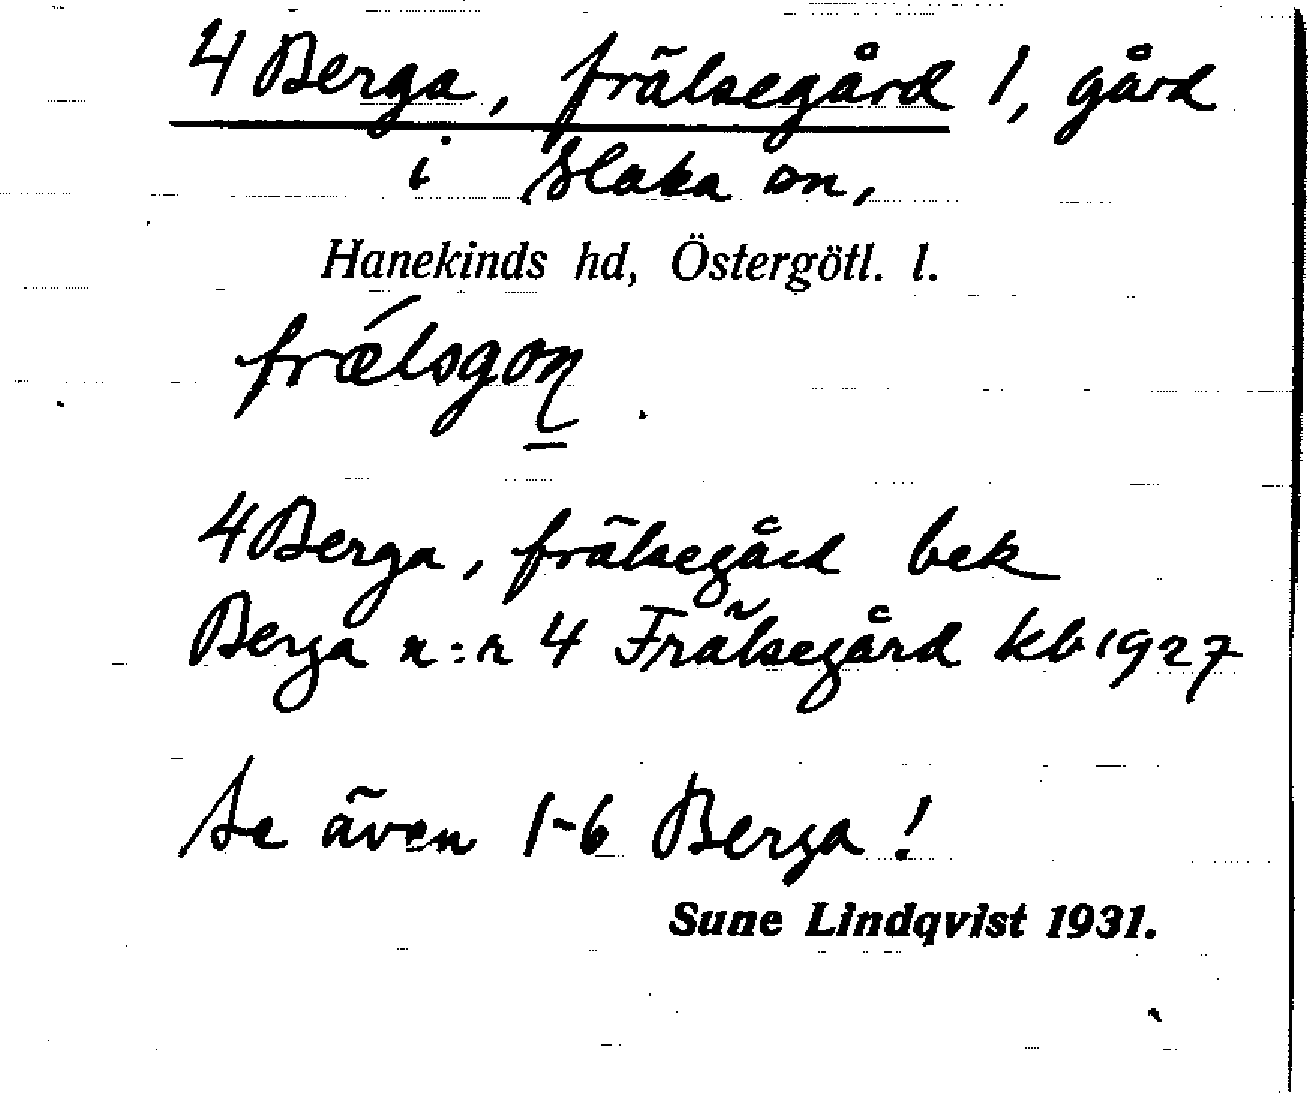 4 Berga, frälsegård 1, gård
i Slaka sn,
Hanekinds hd, Östergötl. l.
frǽlsgoɳ
4 Berga, frälsegård bek
Berga n:r 4 Frälsegård kb 1927
Se även 1-6 Berga!
Sune Lindqvist 1931.